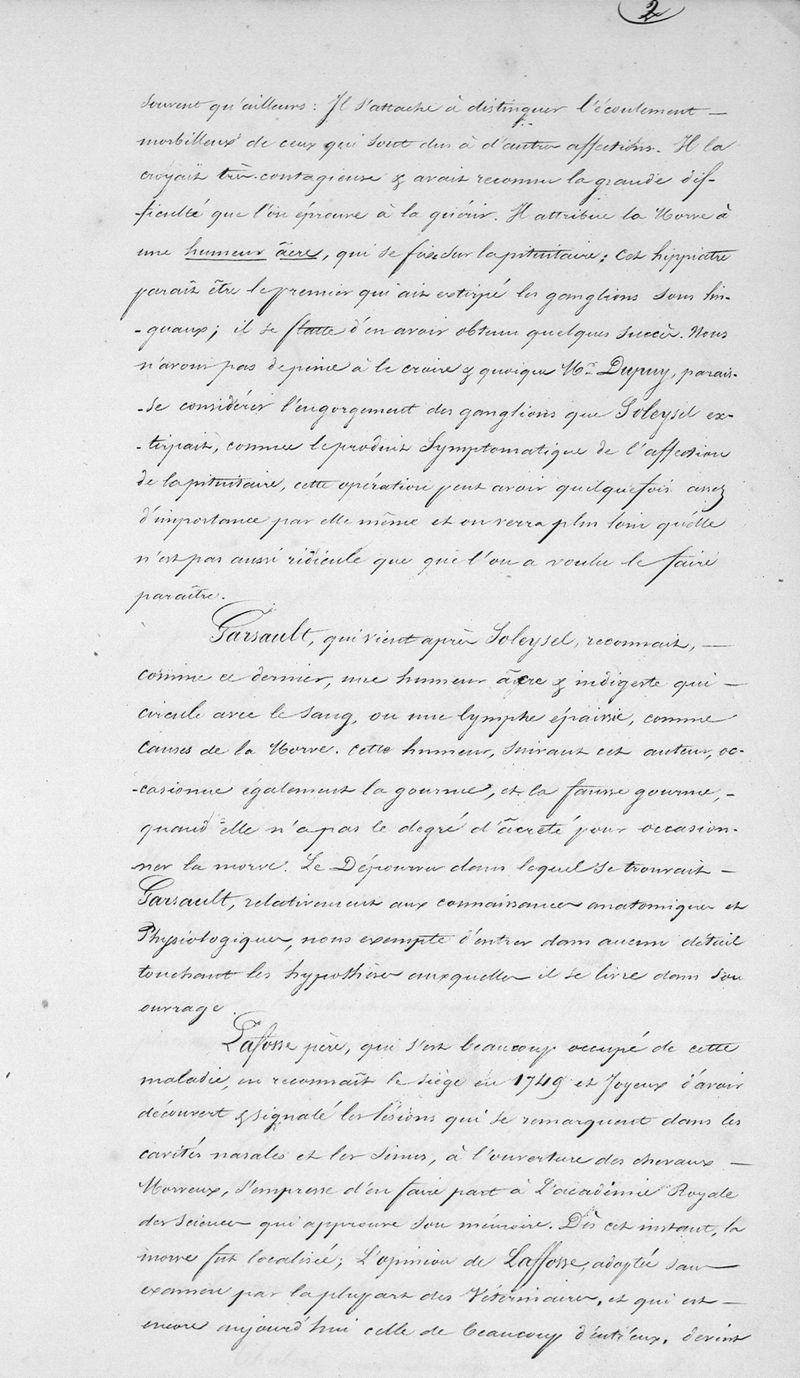 2
souvent qu'ailleurs : Il s'attache à distinguer l'écoulement —
morbilleux de ceux qui sont dus à d'autres affections. Il la
croyait très-contagieuse & avait reconnu la grande dif-
-ficulté que l'on éprouve à la guérir. Il attribue la Morve à
une humeur âcre, qui se fixe sur la pituitaire ; Cet hippiatre
paraît être le premier qui ait extirpé les ganglions sous lin-
-guaux ; il se flatte d'en avoir obtenu quelques succès. Nous
n'avons pas de peine à le croire & quoique Mr. Dupuy, parais-
-se considérer l'engorgement des ganglions que Soleysel ex-
-tirpait, comme le produit Symptomatique de l'affection
de la pituitaire, cette opération peut avoir quelquefois assez
d'importance par elle même et on verra plus loin qu'elle
n'est pas aussi ridicule que que l'on a voulu le faire
paraître.
Garsault, qui vient après Soleysel, reconnait, —
comme ce dernier, une humeur âcre & indigeste qui —
circule avec le sang, ou une lymphe épaissie, comme
causes de la Morve. Cette humeur, suivant cet auteur, oc-
-casionne également la gourme, et la fausse gourme, -
quand elle n'a pas le degré d'âcreté pour occasion-
ner la morve. Le Dépourvu dans lequel se trouvait —
Garsault, relativement aux connaissances anatomiques et
Physiologiques, nous exempte d'entrer dans aucun détail
touchant les hypothèses auxquelles il se livre dans son
ouvrage.
Lafosse père, qui s'est beaucoup occupé de cette
maladie, en reconnaît le siège en 1749 et Joyeux d'avoir
découvert & signalé les lésions qui se remarquent dans les
cavités nasales et les sinus, à l'ouverture des chevaux —
Morveux, s'empresse d'en faire part à L'académie Royale
des sciences qui approuve son mémoire. Dès cet instant, la
morve fut localisée ; L'opinion de Laffosse, adoptée sans
examen par la plupart des Vétérinaires, et qui est —
encore aujourd'hui celle de beaucoup d'entr'eux, devint